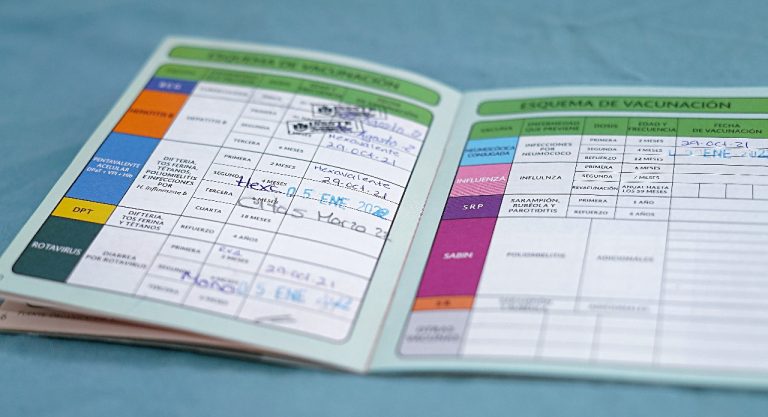 ESQUEMA DE VACUNACIÓN
B C G
HEPATITIS B
HEPATITIS B
PRIMERA
SEGUNDA
2 MESES
TERCERA
Agosto 2
Hexavalente
29.Oct.21
PENTAVALENTE
ACELULAR
DPaT + VPI + Hib
DIFTERIA,
TOS FERINA
TÉTANOS,
POLIOMIELITIS
E INFECCIONES
POR
H. Influenzae b
PRIMERA
2 MESES
Hexavalente
29.Oct.21
SEGUNDA
4 MESES
Hexa 05 ENE 2022
TERCERA
6 MESES
5 Marzo 22
CUARTA
18 MESES
DPT
DIFTERIA,
TOS FERINA
Y TÉTANOS
REFUERZO
4 AÑOS
ROTAVIRUS
DIARREA
POR ROTAVIRUS
PRIMERA
2 MESES
29.Oct.21
SEGUNDA
05 ENE 2022
TERCERA
ESQUEMA DE VACUNACIÓN
VACUNA
ENFERMEDAD
QUE PREVIENE
DOSIS
EDAD Y
FRECUENCIA
FECHA
DE VACUNACIÓN
NEUMOCÓCICA
CONJUGADA
INFECCIONES
POR
NEUMOCOCO
PRIMERA
2 MESES
29.Oct.21
SEGUNDA
4 MESES
05 ENE 2022
REFUERZO
12 MESES
INFLUENZA
INFLUENZA
PRIMERA
6 MESES
SEGUNDA
7 MESES
REVACUNACIÓN
ANUAL HASTA
LOS 59 MESES
SRP
SARAMPIÓN,
RUBÉOLA Y
PAROTIDITIS
PRIMERA
1 AÑO
REFUERZO
6 AÑOS
SABIN
POLIOMIELITIS
ADICIONALES
SR
ADICIONALES
OTRAS
VACUNAS